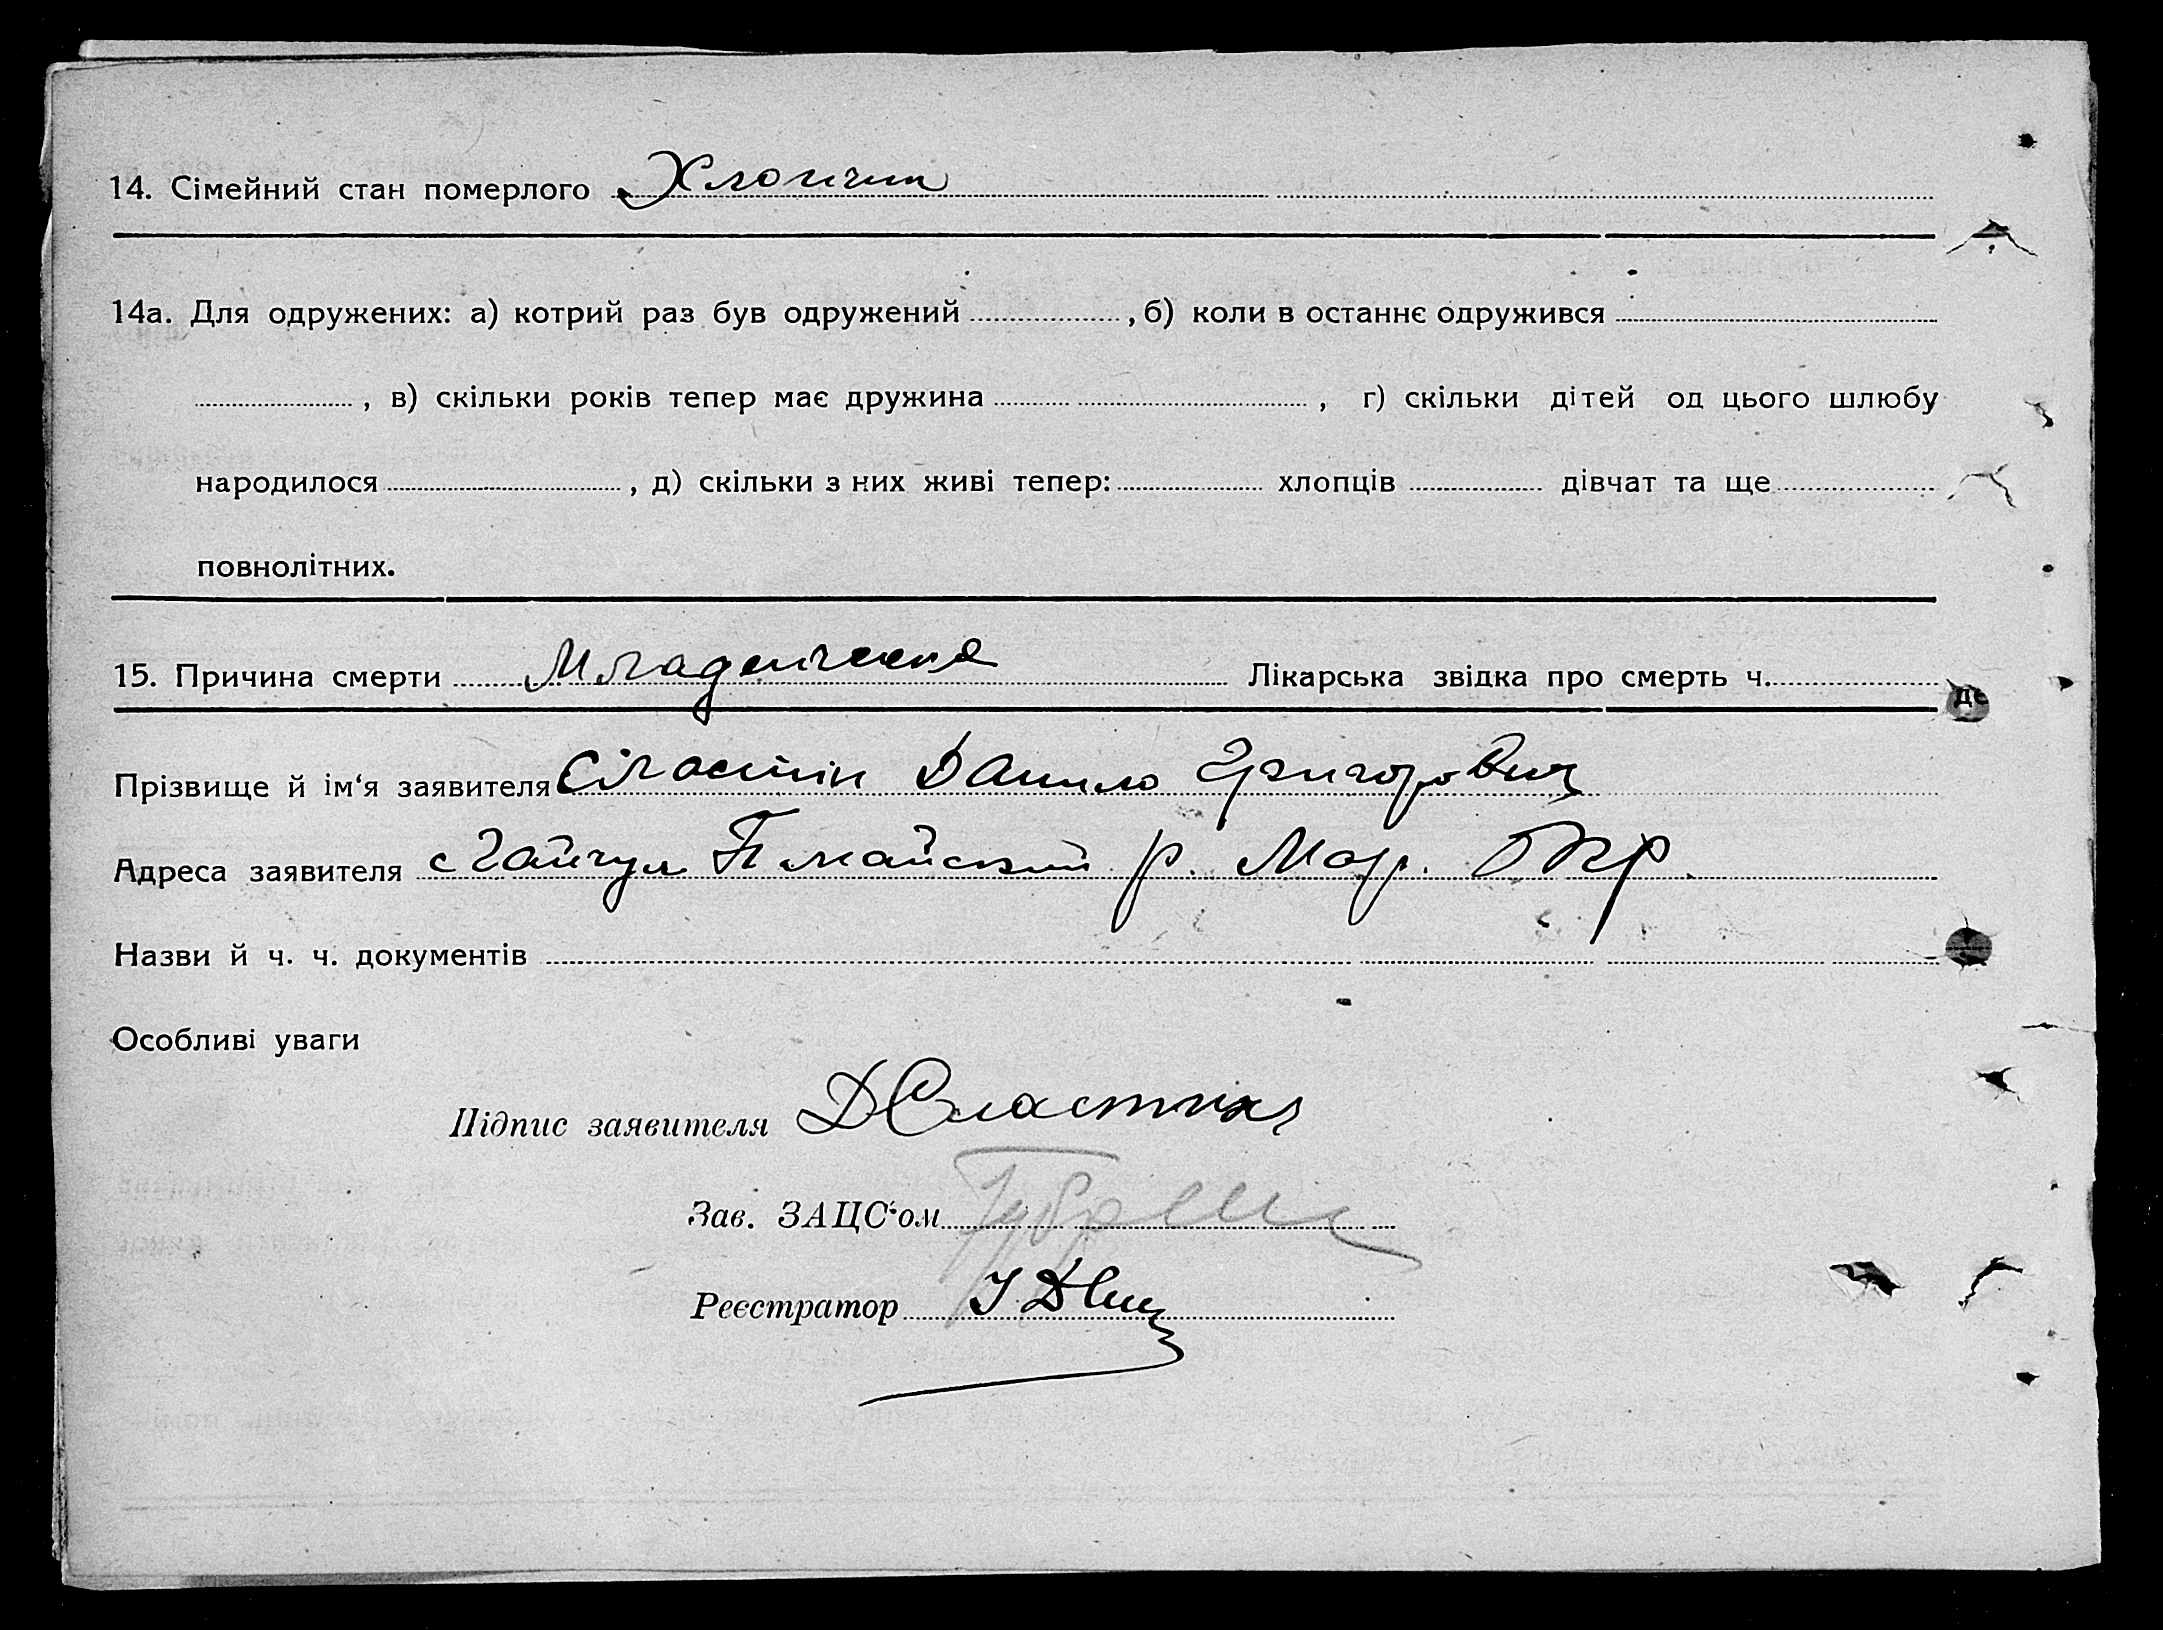 14. Сімейний стан померлого Хлопчик
14а. Для одружених: а) котрий раз був одружений , б) коли в останнє одружився
, в) скільки років тепер має дружина , г) скільки дітей од цього шлюбу
народилося , д) скільки з них живі тепер: хлопців дівчат та ще
повнолітних.
15. Причина смерти Младенческа Лікарська звідка про смерть ч.
де
Прізвище й ім'я заявителя Сластін Данило Григорович
Адреса заявителя с Гайчул П майский р. Мар. Окр.
Назви й ч. ч. документів
Особливі уваги
Підпис заявителя Д Сластин
Зав. ЗАЦС'ом
Реєстратор